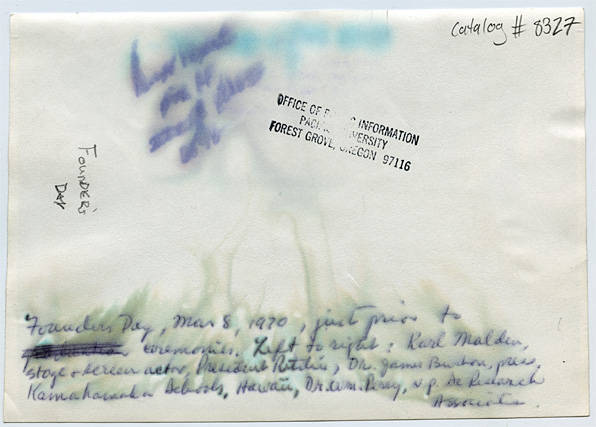 Catalog # 8327
OFFICE OF INFORMATION
FOREST GROVE, OREGON 97116
FOUNDER'S
DAY
Founders Day, Mar 8, 1970, just prior to
ceremonies. Left to right: Karl Malden,
stage & screen actor, President Ritchie, Dr. James Bushon, pres.
Kamahamaha Schools, Hawaii, Dr. Wm. Percy, v.p. de Research
Associates.